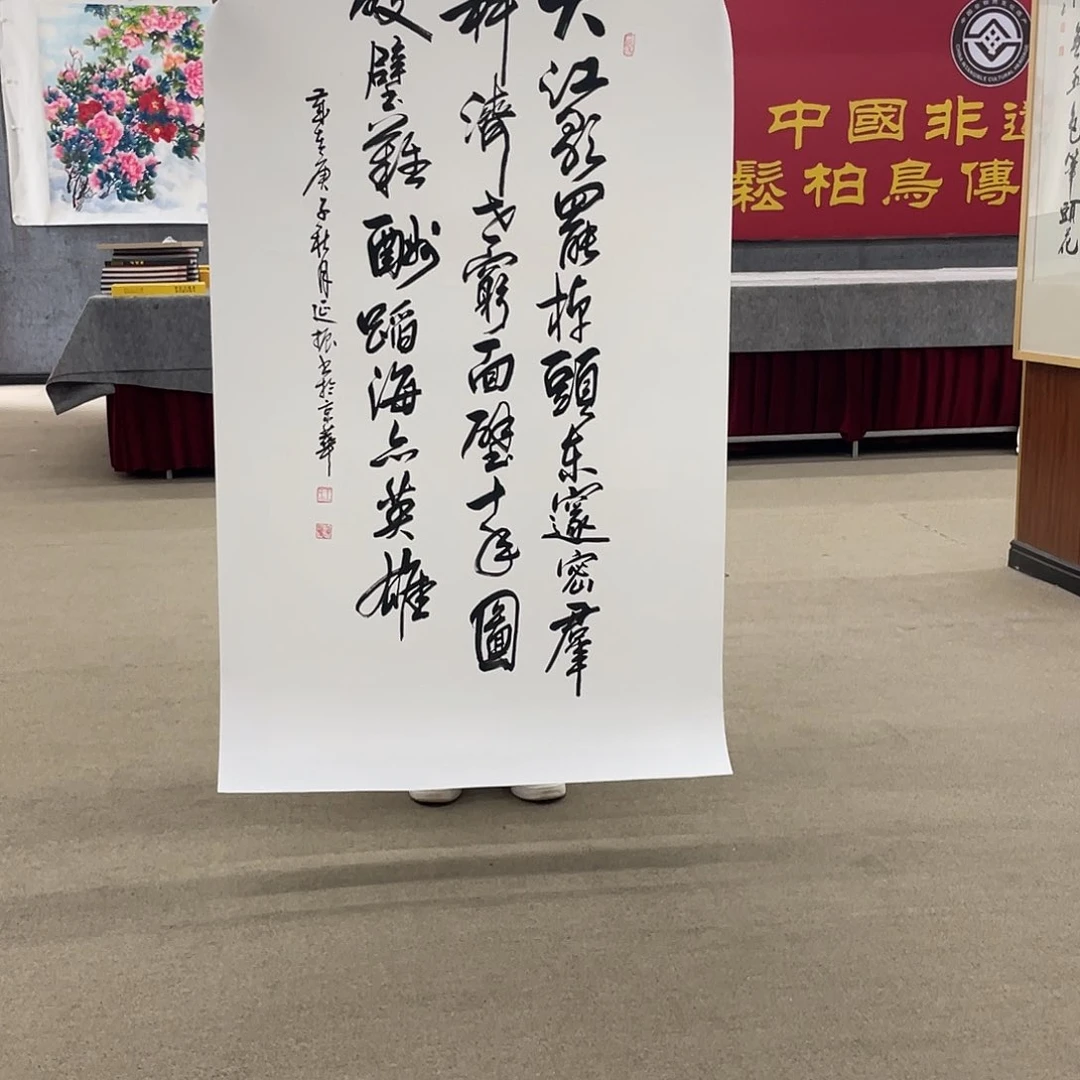 大江歌罷掉頭東邃密羣
科濟世窮面壁十年圖
破壁難酬蹈海亦英雄
歲在庚子秋月延振书於京華
中國非
鬆柏鳥傳
五色筆頭花